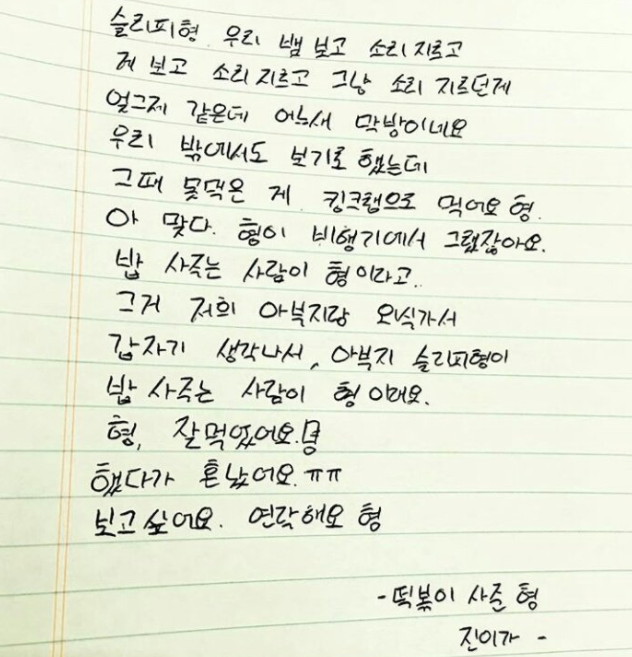 슬리피형 우리 뱀 보고 소리지르고
게 보고 소리지르고 그냥 소리 지르던게
엊그제 같은데 어느새 막방이네요
우리 밖에서도 보기로 했는데
그때 못먹은 게 킹크랩으로 먹어요 형.
아 맞다. 형이 비행기에서 그랬잖아요.
밥 사주는 사람이 형이라고.
그거 저희 아부지랑 외식가서
갑자기 생각나서, 아부지 슬리피형이
밥 사주는 사람이 형 이래요.
형, 잘먹었어요.
했다가 혼났어요. ㅠㅠ
보고싶어요. 연락해요 형
- 떡볶이 사준 형
진이가 -